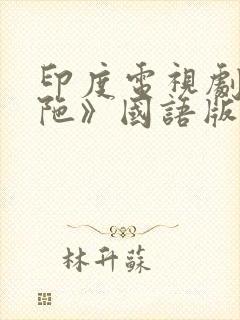 印度電視劇
陁》國語版
林升蘇